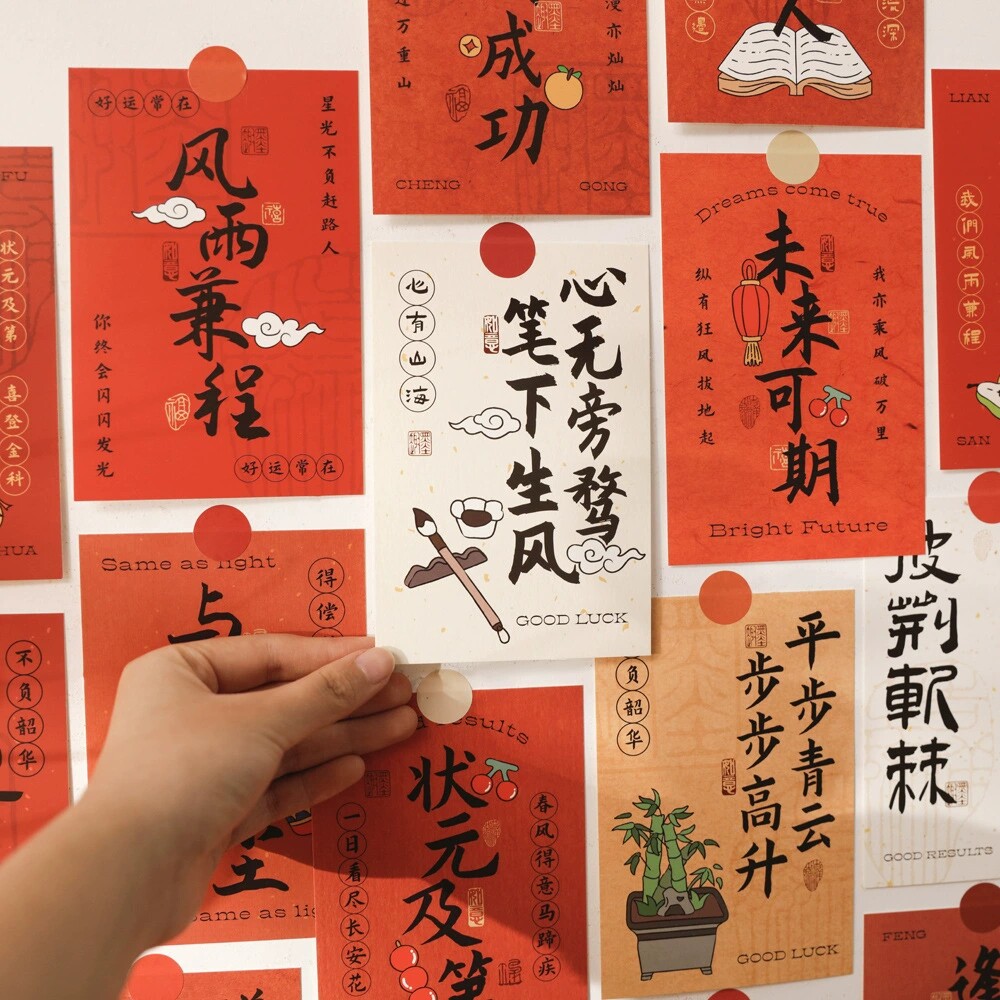 FU
状元及第
喜登金科
HUA
不负韶华
好运常在
星光不负赶路人
风雨兼程
你终会闪闪发光
好运常在
万重山
漫亦灿灿
成功
CHENG
GONG
人
心无旁骛
笔下生风
心有山海
GOOD LUCK
Dreams come true
我亦乘风破万里
未来可期
纵有狂风拔地起
Bright Future
LIAN
我們風雨兼程
SAN
Same as light
得偿
与
Same as lig
Results
春风得意马蹄疾
状元及第
一日看尽长安花
平步青云
步步高升
负韶华
GOOD LUCK
披荆斩棘
GOOD RESULTS
FENG
逢